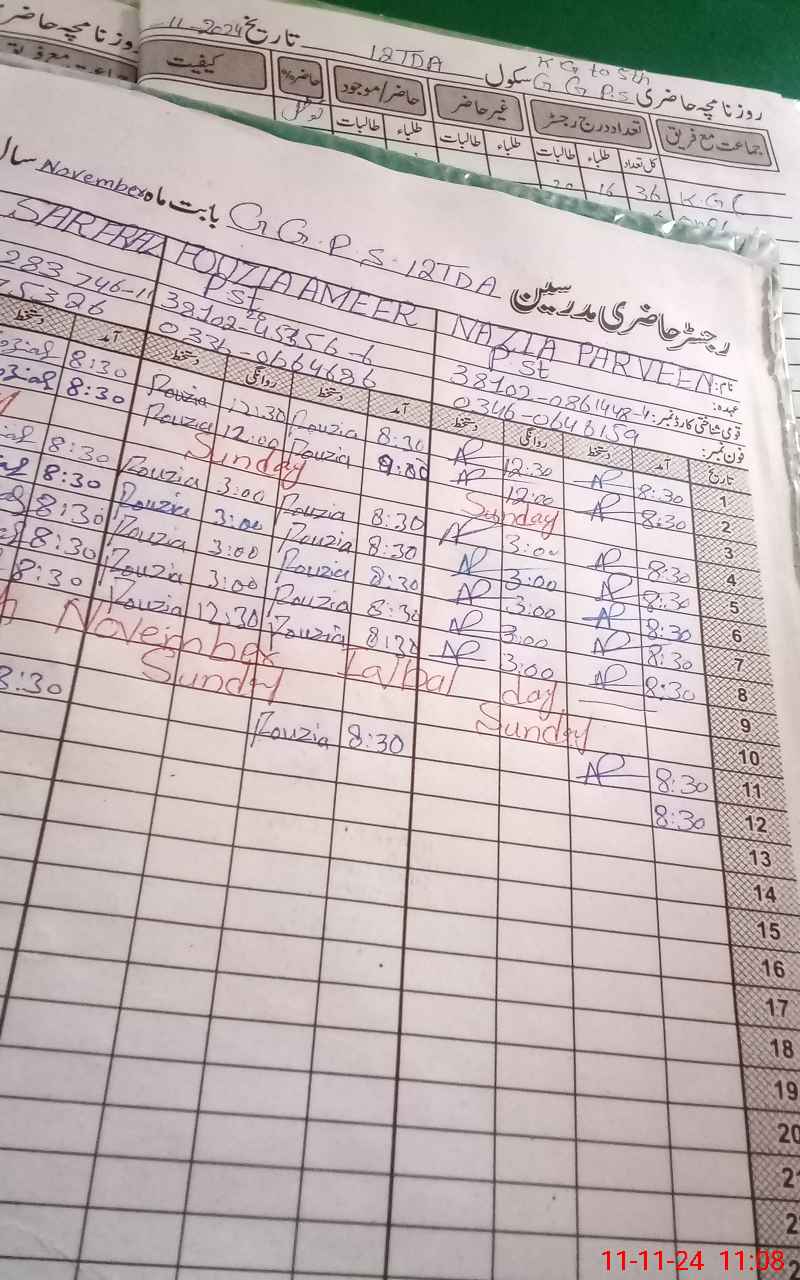 روزنامچہ حاضری G G P.S سکول 12TDA تاریخ 11-2024
KG to 5th
جماعت مع فریق تعداد درج رجسٹر غیر حاضر حاضر/موجود حاضر% کیفیت
کل تعداد طلباء طالبات طلباء طالبات طلباء طالبات
K.G C 36 16 20
رجسٹر حاضری مدرسین G G.P.S.12TDA بابت ماہ November سال
نام: NAZIA PARVEEN FOUZIA AMEER SARFRAZ
عہدہ: P.St P.St
قومی شناختی کارڈ نمبر: 38102-0861448-4
فون نمبر: 0346-0648159 0334-0664686 75326
تاریخ آمد دستخط روانگی دستخط آمد دستخط روانگی دستخط آمد دستخط
1 8:30 12:30 8:30 Fouzia 12:30 Fouzia 8:30
2 8:30 12:00 Fouzia 12:00 Fouzia 8:30
3 Sunday Sunday
4 8:30 3:00 8:30 Fouzia 3:00 Fouzia 8:30
5 8:30 3:00 8:30 Fouzia 3:00 Fouzia 8:30
6 8:30 3:00 8:30 Fouzia 3:00 Fouzia 8:30
7 8:30 3:00 8:30 Fouzia 3:00 Fouzia 8:30
8 8:30 3:00 8:30 Fouzia 12:30 Fouzia 8:30
9 November Iqbal day
10 Sunday Sunday
11 8:30 8:30 Fouzia 8:30
12 8:30
13
14
15
16
17
18
19
20
11-11-24 11:08